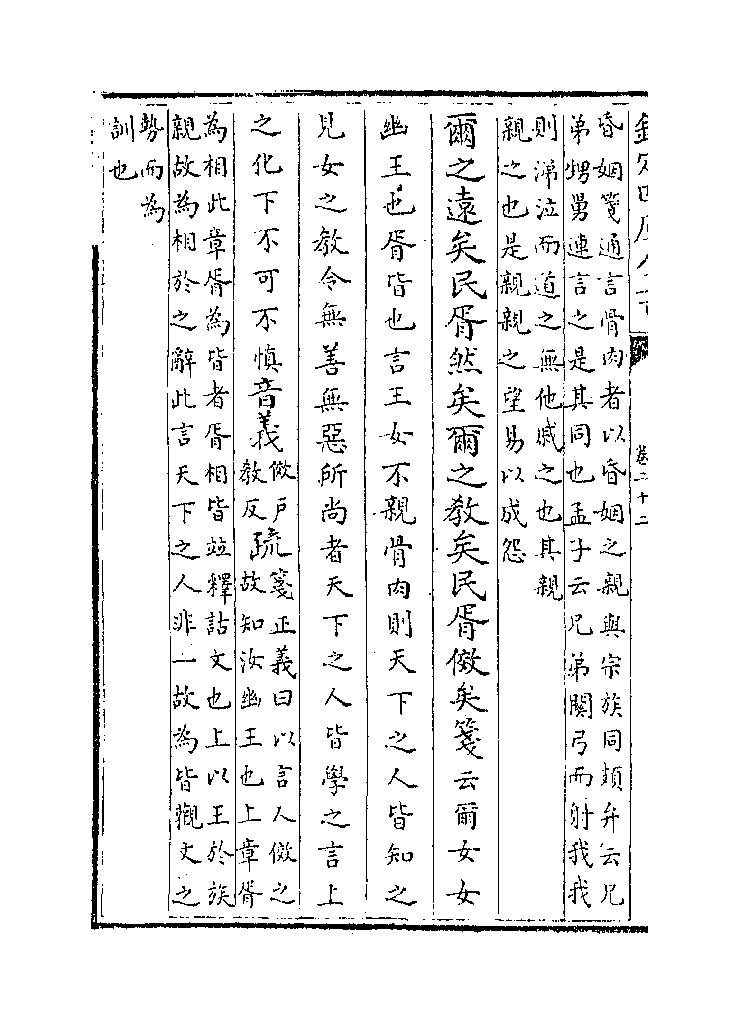 昏姻箋通言骨肉者以昏姻之親與宗族同頍弁云兄
弟甥舅連言之是其同也孟子云兄弟關弓而射我我
則涕泣而道之無他戚之也其親
親之也是親親之望易以成怨
爾之遠矣民胥然矣爾之教矣民胥傚矣箋云爾女女
幽王也胥皆也言王女不親骨肉則天下之人皆知之
見女之教令無善無惡所尚者天下之人皆學之言上
之化下不可不慎音義傚戶教反疏箋正義曰以言人傚之故知汝幽王也上章胥
為相此章胥為皆者胥相皆竝釋詁文也上以王於族
親故為相於之辭此言天下之人非一故為皆觀文之
勢而為
訓也
卷二十二